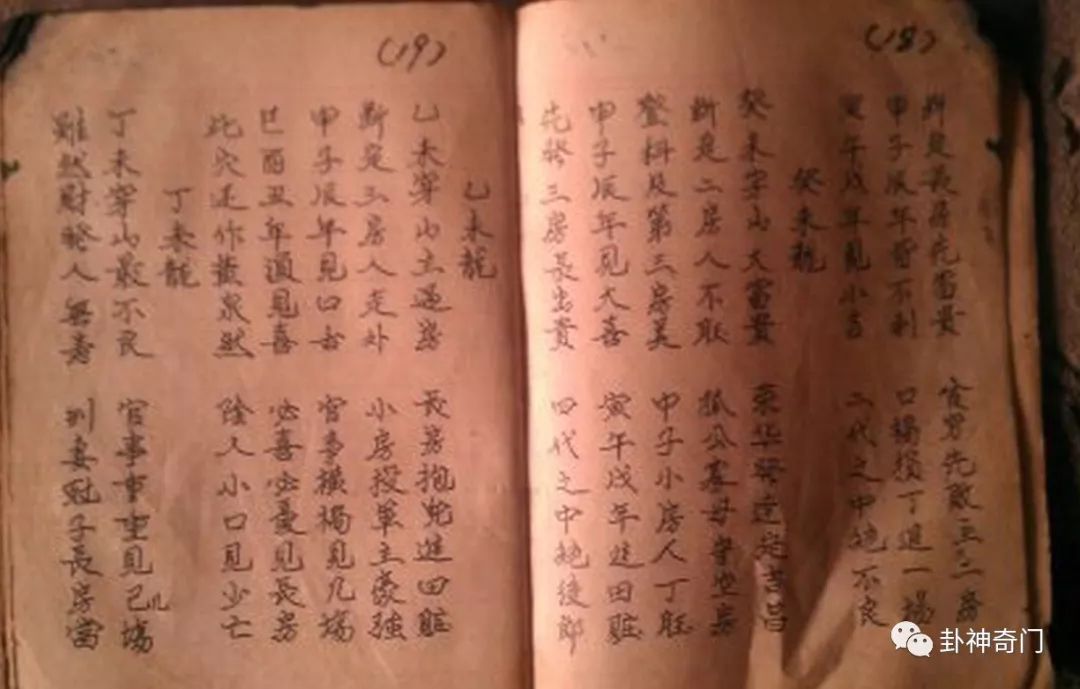 (18)
断是長房先富貴 貧窮先敗主三房
甲子辰年皆不利 口損丁進一場
寅午戌年見小吉 二代之中絶不良
癸未龍
癸未穿山大富貴 荣华發達定吉昌
断是二房人不旺 孤公寡母守空房
登科及第三房美 申子小房人丁旺
甲子辰年見大喜 寅午戌年進田庄
先發三房長出貴 四代之中絶後郎
(19)
乙未龍
乙未穿山主過房 長房抱兒進田庄
断定三房人走外 小房投軍主豪强
甲子辰年見口舌 官事橫禍見几場
巳酉丑年還見喜 必喜必憂見長房
此穴还作黄泉然 陰人小口見少亡
丁未龍
丁未穿山最不良 官事重重見几場
雖然財發人無壽 刑妻尅子長房當
卦神奇门